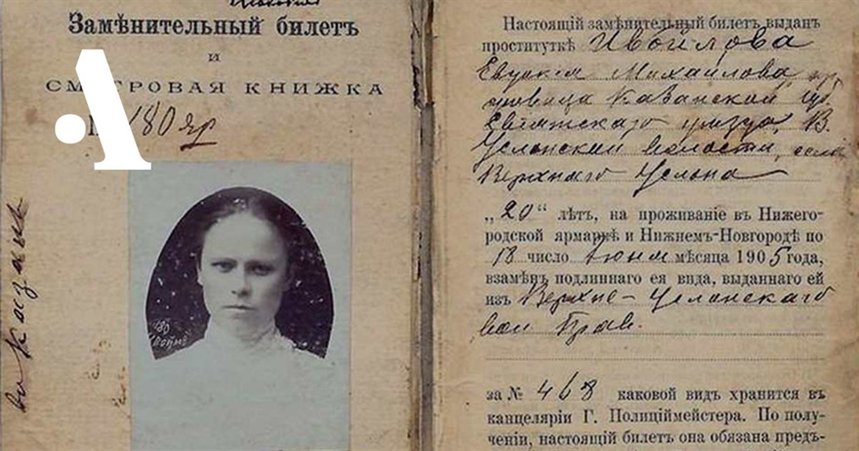 Замѣнительный билетъ
и
СМОТРОВАЯ КНИЖКА
180 яр
180
въ Казань
Настоящій замѣнительный билетъ выданъ
проституткѣ Ивойлова
Евдокія Михайлова, кр
Казанской губ
Свіяжскаго уѣзда, В.
Услонской волости, села
Верхняго Услона
„20“ лѣтъ, на проживаніе въ Нижего-
родской ярмаркѣ и Нижнемъ-Новгородѣ по
18 число Іюня мѣсяца 1905 года,
взамѣнъ подлиннаго ея вида, выданнаго ей
изъ Верхне-Услонскаго
вол Прав.
за № 468 каковой видъ хранится въ
канцеляріи Г. Полиціймейстера. По полу-
ченіи, настоящій билетъ она обязана предъ-